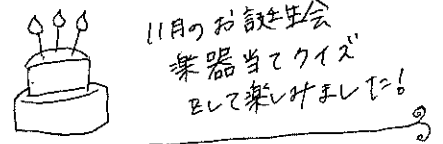 11月のお誕生会
楽器当てクイズ
をして楽しみました！